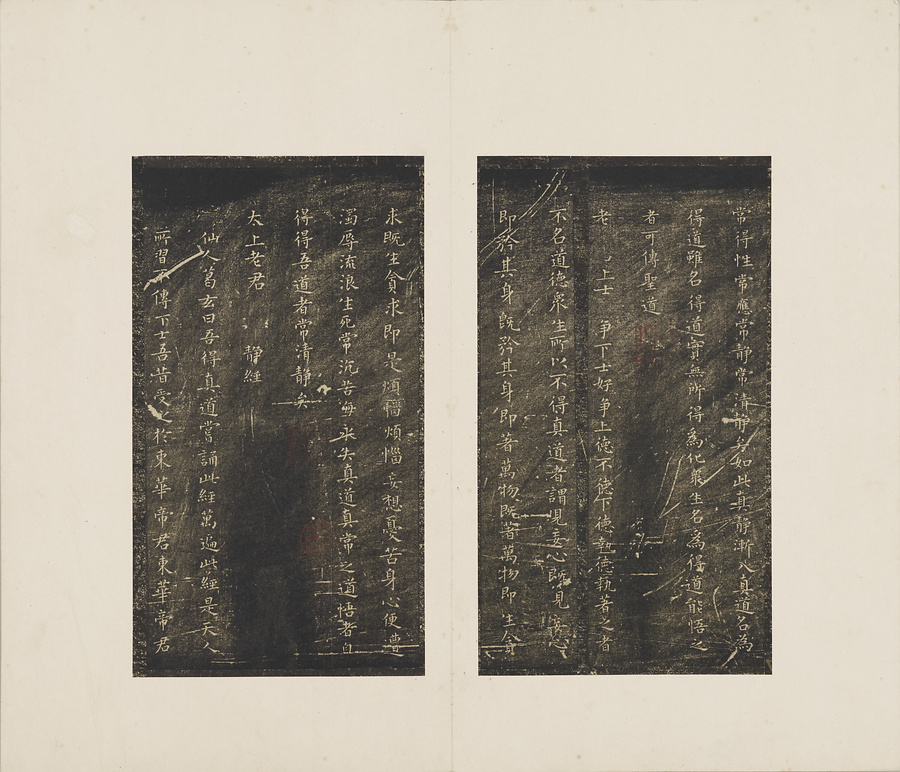 常得性常應常静常清静矣如此真静漸入真道名為
得道雖名得道實無所得為化衆生名為得道能悟之
者可傳聖道
老 上士 争下士好争上徳不徳下徳執徳執著之者
不名道徳衆生所以不得真道者謂見妄心既見妄心
即矜其身既矜其身即著萬物既著萬物即生貪
求既生貪求即是煩惱煩惱妄想憂苦身心便遭
濁辱流浪生死常沉苦海永失真道真常之道悟者自
得得吾道者常清静矣
太上老君 静經
仙人葛玄曰吾得真道嘗誦此經萬遍此經是天人
所習不傳下士吾昔受之於東華帝君東華帝君